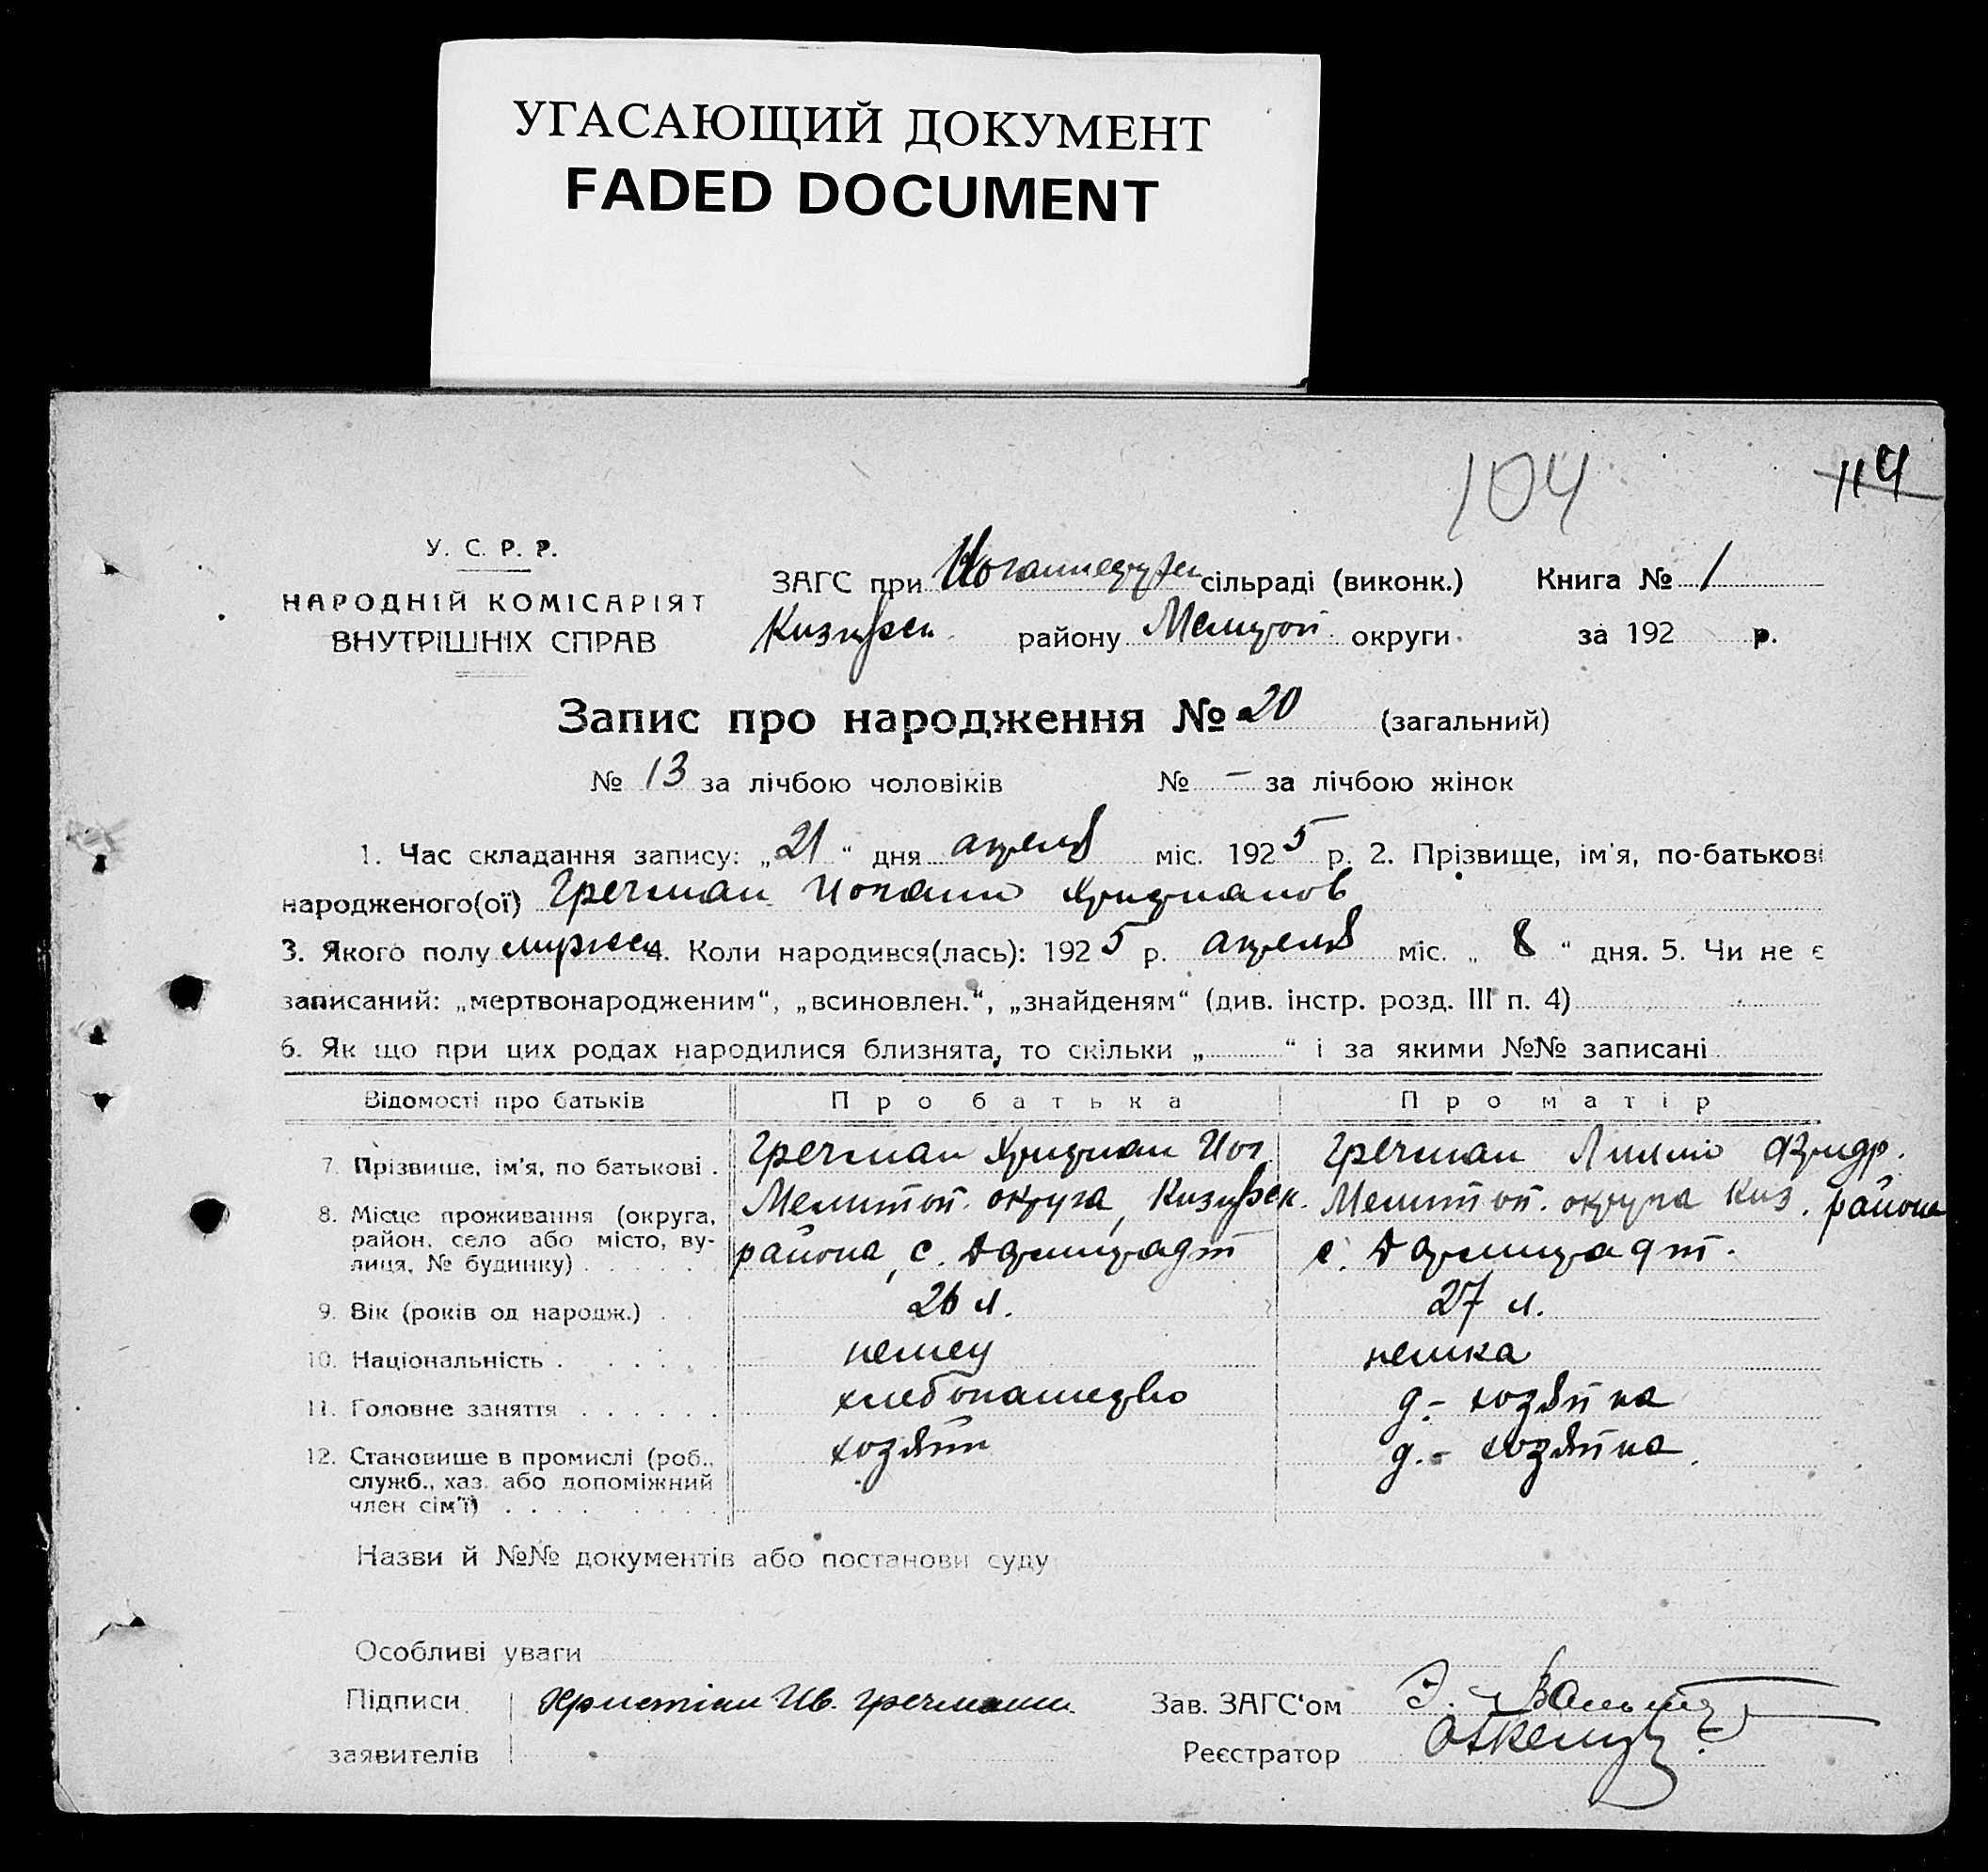 УГАСАЮЩИЙ ДОКУМЕНТ
FADED DOCUMENT
104
114
У. С. Р. Р.
НАРОДНІЙ КОМІСАРІЯТ
ВНУТРІШНІХ СПРАВ
ЗАГС при сільраді (виконк.) Книга № 1
району округи за 192 р.
Запис про народження № 20 (загальний)
№ 13 за лічбою чоловіків № — за лічбою жінок
1. Час складання запису: „21“ дня апреля міс. 1925 р. 2. Прізвище, ім'я, по-батькові
народженого(ої) Гречман Иоганн Християнов
3. Якого полу мужск 4. Коли народився(лась): 1925 р. апреля міс. „8“ дня. 5. Чи не є
записаний: „мертвонародженим“, „всиновлен.“, „знайденям“ (див. інстр. розд. III п. 4)
6. Як що при цих родах народилися близнята, то скільки „ “ і за якими №№ записані
Відомості про батьків Про батька Про матір
7. Прізвище, ім'я, по батькові . Гречман Християн Иог. Гречман Лилия
8. Місце проживання (округа, район, село або місто, ву-лиця, № будинку) . . . . . Мелитоп. округа, района, с. Дармштадт Мелитоп. округа Киз. района с. Дармштадт.
9. Вік (років од народж.) . . 26 л. 27 л.
10. Національність . . . . . немец немка
11. Головне заняття . . . . . . хлебопашество д.- хозяйка
12. Становище в промислі (роб., служб., хаз. або допоміжний член сім'ї) . . . . . . . хозяин д.- хозяйка.
Назви й №№ документів або постанови суду
Особливі уваги
Підписи Христіан Ив. Гречманн Зав. ЗАГС'ом
заявителів Реєстратор